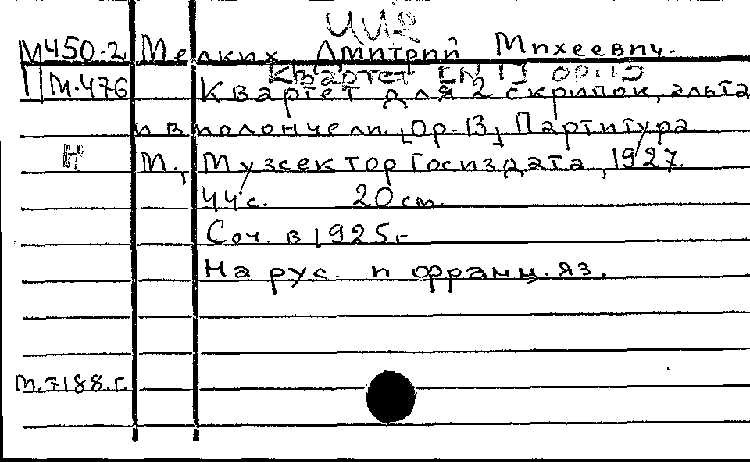 ЧИ2
М450-2 Мелких Дмитрий Михеевич.
Квартет
П М.476 Квартет для 2 скрипок, альта
и виолончели. [Ор. 13]. Партитура
Н М., Музсектор Госиздата, 1927.
44 с. 20 см.
Соч. в 1925 г.
На рус. и франц. яз.
М.7188.г.